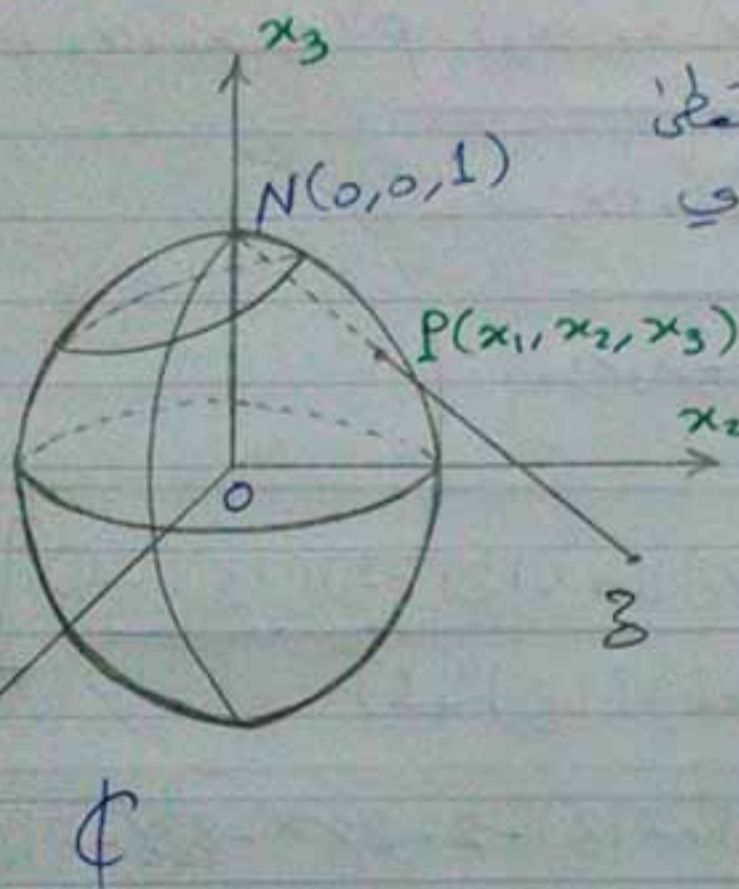 x₃
N(0,0,1)
P(x₁, x₂, x₃)
x₂
O
z
ℂ